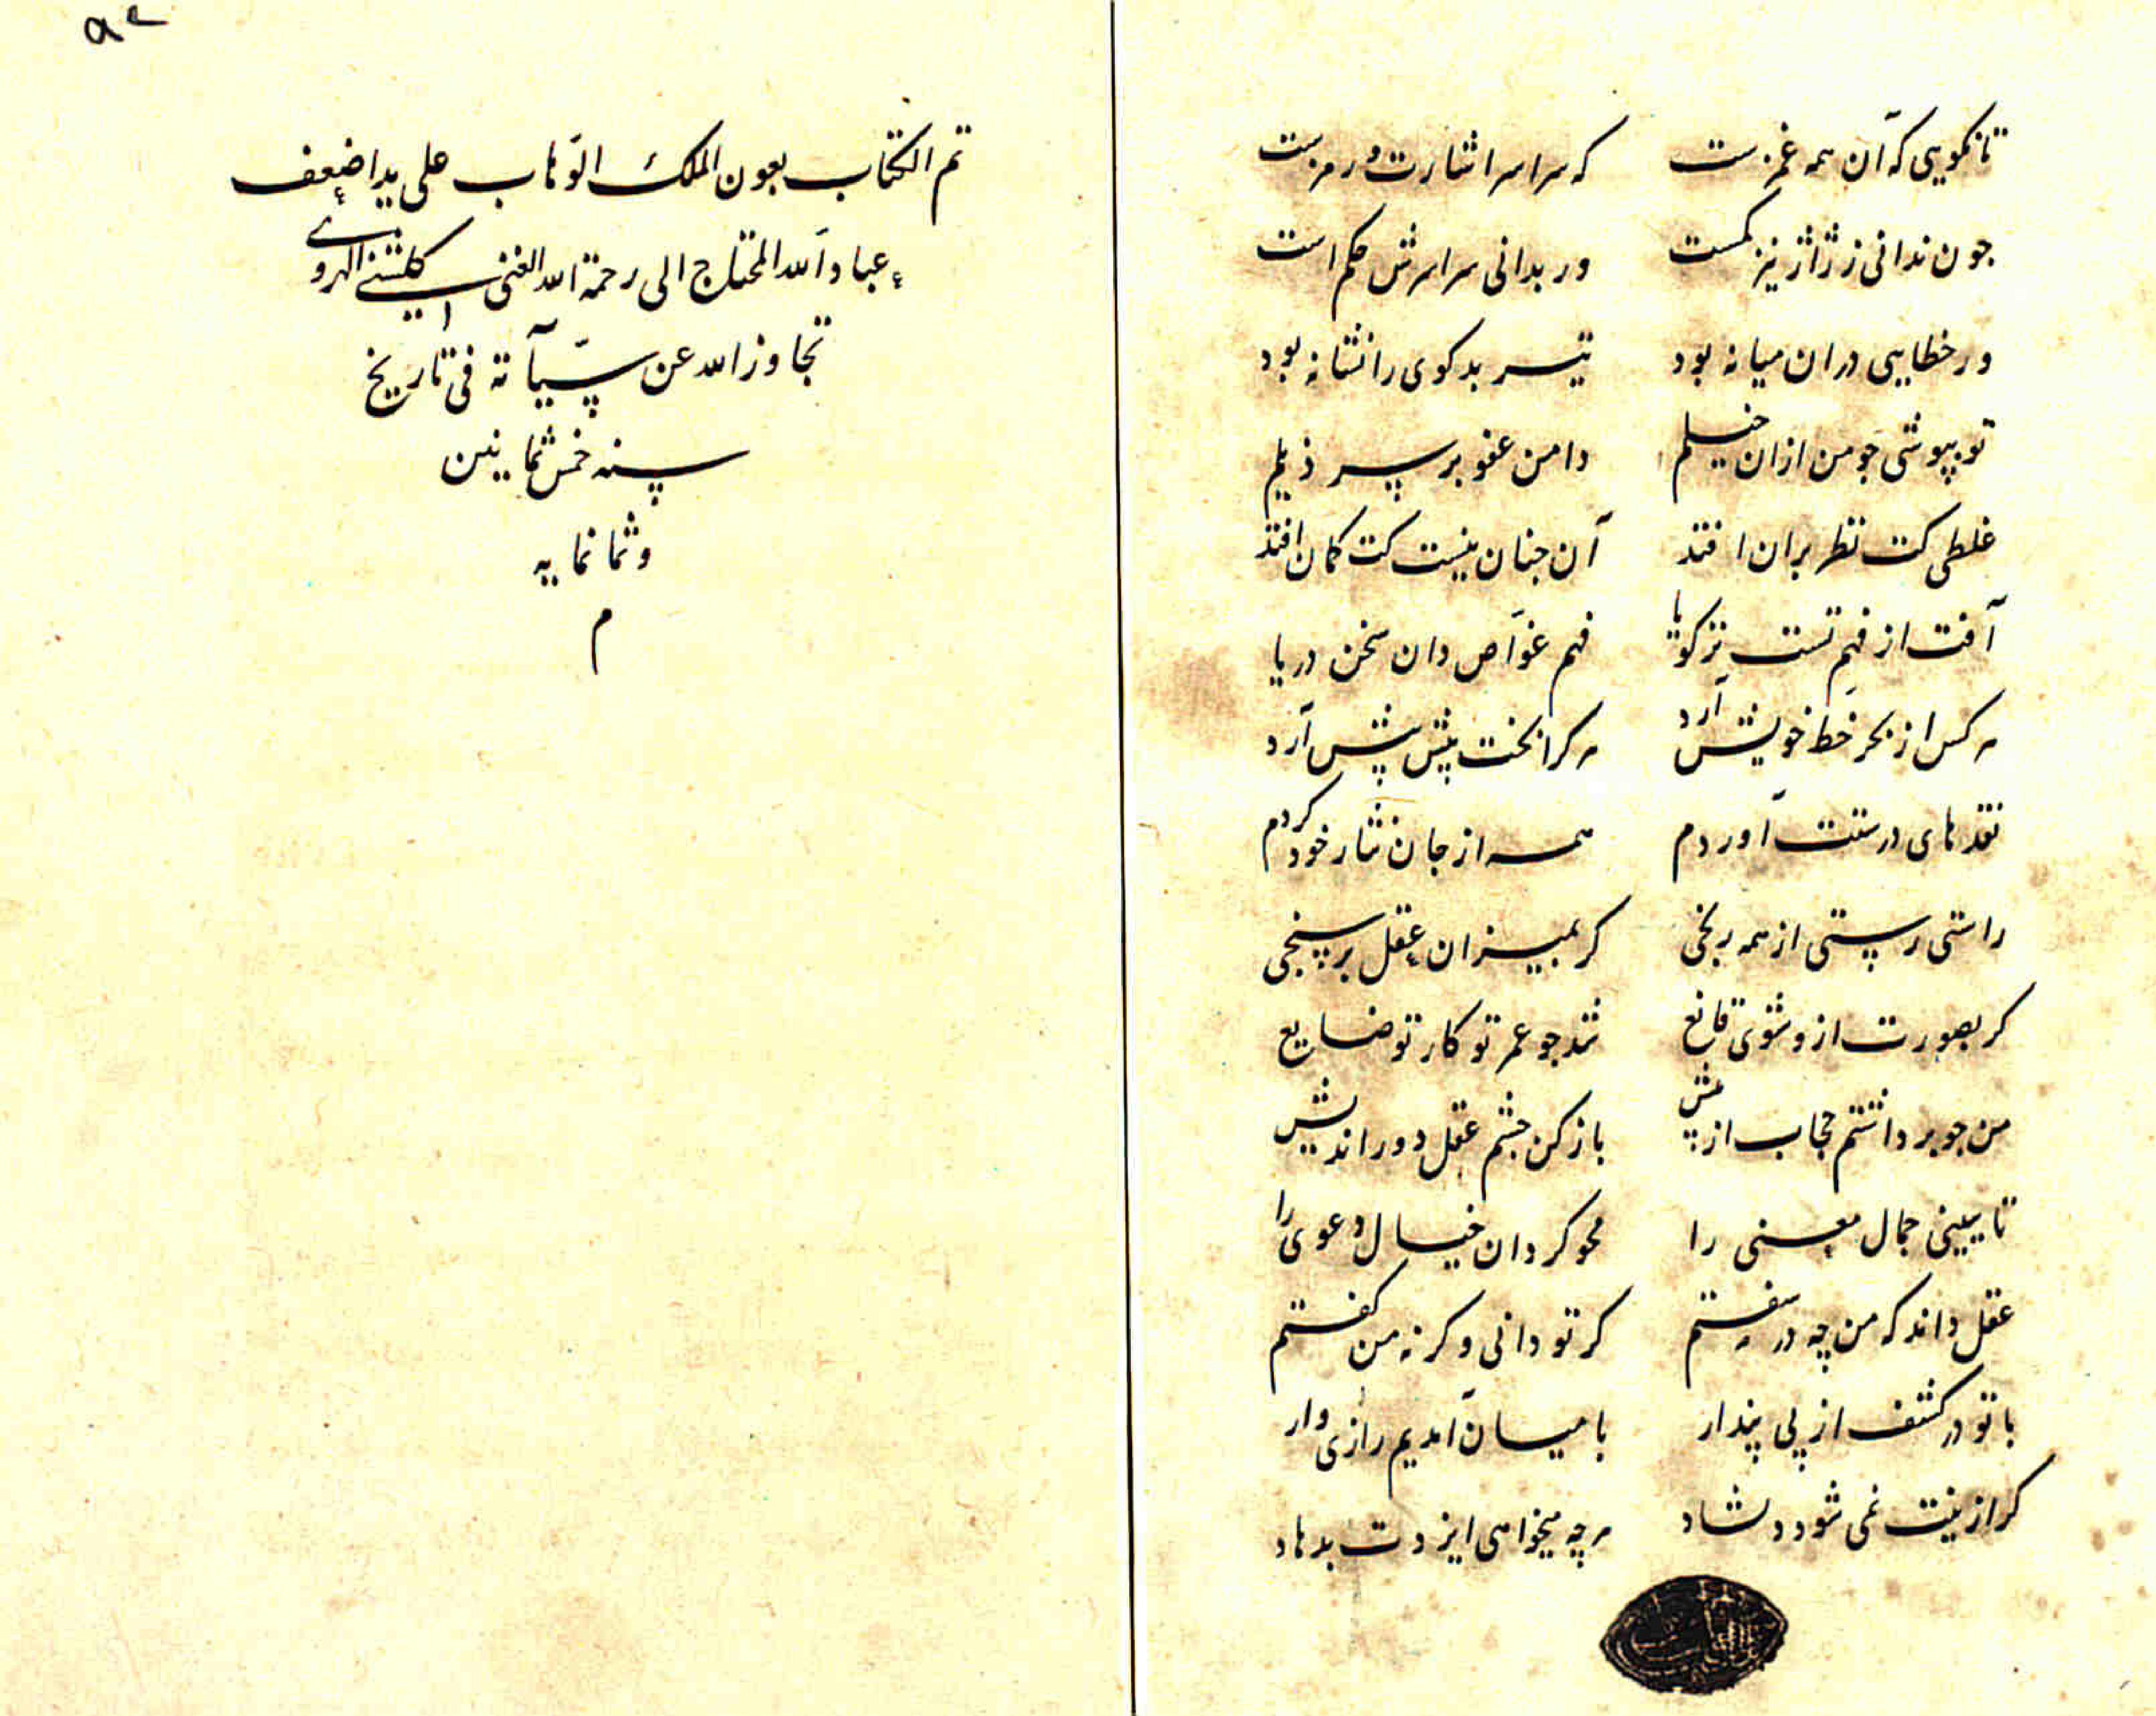 تا نکویی که آن همه غمزست که سراسر اشارت و رمزست
جون ندانی ز ژاژ نیز کمست ور بدانی سراسرش حکم است
ور خطایی دران میانه بود تیر بدکوی را نشانه بود
تو بپوشی جو من ازان خیلم دامن عفو بر سر ذیلم
غلطی کت نظر بران افتد آن جنان نیست کت کمان افتد
آفت از فهم تست نز کویا فهم غوّاص دان سخن دریا
هر کس از بحر خط خویش آرد هر کرا بخت بیش بیش آرد
نقدهای درستت آوردم همه از جان نثار خود کردم
راستی رستی از همه رنجی کر بمیزان عقل بر سنجی
کر بصورت ازو شوی قانع شد جو عمر تو کار تو ضایع
من جو برداشتم حجاب از پیش باز کن جشم عقل دوراندیش
تا ببینی جمال معنی را محو کردان خیال دعوی را
عقل داند که من چه در سفتم کر تو دانی و کر نه من کفتم
با تو در کشف از پی پندار با میان آمدیم رازی وار
کر ازینت نمی شود دلشاد هر چه میخواهی ایزدت بدهاد
۹۲
تم الکتاب بعون الملک الوّهاب علی ید اضعف
عباد الله المحتاج الی رحمة الله الغنی الهروی
تجاوز الله عن سیّآته فی تاریخ
سنه خمس ثمانین
و ثمانمایه
م